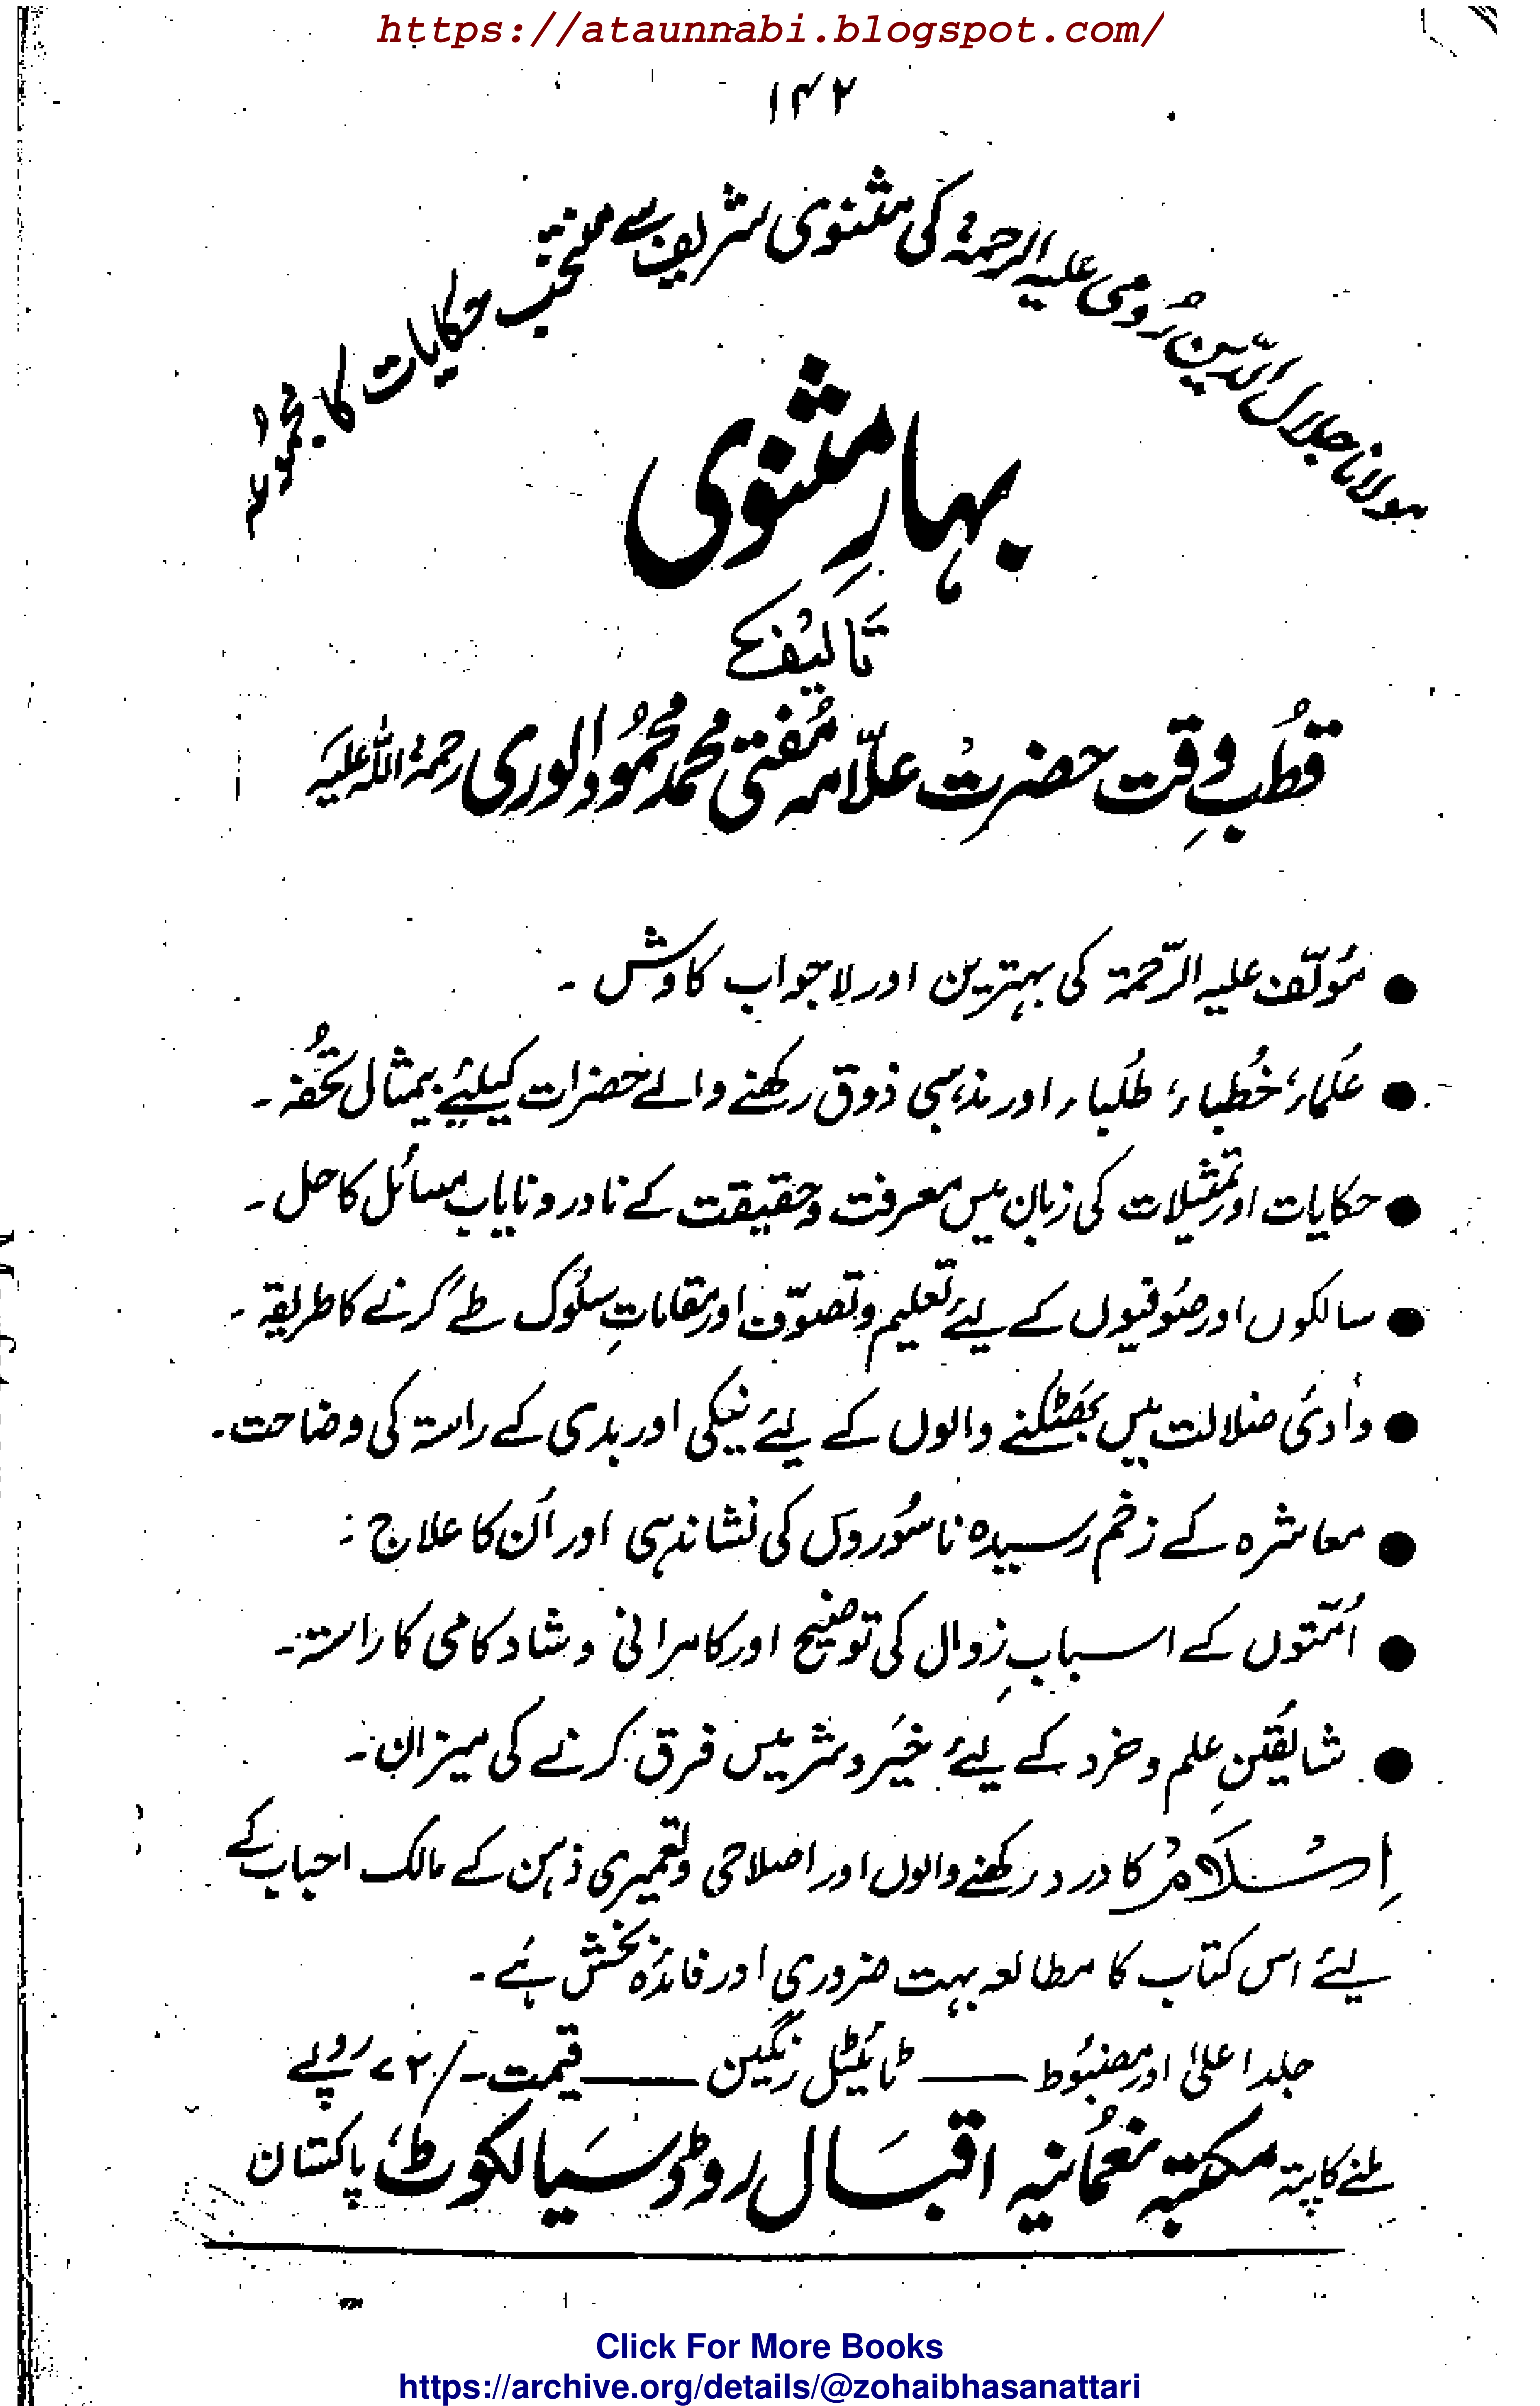 https://ataunnabi.blogspot.com/
۱۴۲
مولانا جلال الدّین رُومی علیہ الرحمۃ کی مثنوی شریف سے منتخب حکایات کا مجمُوعہ
بہارِ مثنوی
تالیف
قطُبِ وقت حضرت علّامہ مُفتی محمد محمُود الوری رحمۃ اللہ علیہ
● مُولّف علیہ الرّحمۃ کی بہترین اور لاجواب کاوش ۔
● عُلماء، خُطباء، طُلباء اور مذہبی ذوق رکھنے والے حضرات کیلئے بیمثال تحُفہ ۔
● حکایات اور تمثیلات کی زبان میں معرفت وحقیقت کے نادر و نایاب مسائل کا حل ۔
● سالکوں اور صُوفیوں کے لیئے تعلیم وتصوّف اور مقاماتِ سلُوک طے کرنے کا طریقہ ۔
● وادیٔ ضلالت میں بھَٹکنے والوں کے لیئے نیکی اور بدی کے راستہ کی وضاحت ۔
● معاشرہ کے زخم رسیدہ ناسُوروں کی نشاندہی اور اُن کا علاج :
● اُمّتوں کے اسبابِ زوال کی توضیح اور کامرانی و شادکامی کا راستہ ۔
● شایقینِ علم و خرد کے لیئے خیَر و شر میں فرق کرنے کی میزان ۔
اِسْلَامْ کا درد رکھنے والوں اور اصلاحی و تعمیری ذہن کے مالک احباب کے
لیئے اس کتاب کا مطالعہ بہت ضروری اور فائدہ بخش ہَے ۔
جلد اعلیٰ اور مضبُوط —— ٹائیٹل رنگین —— قیمت ۔/۷۲ روپے
ملنے کا پتہ مکتبہ نعُمانیہ اقبَال روڈ سیَالکوٹ، پاکستان
Click For More Books
https://archive.org/details/@zohaibhasanattari